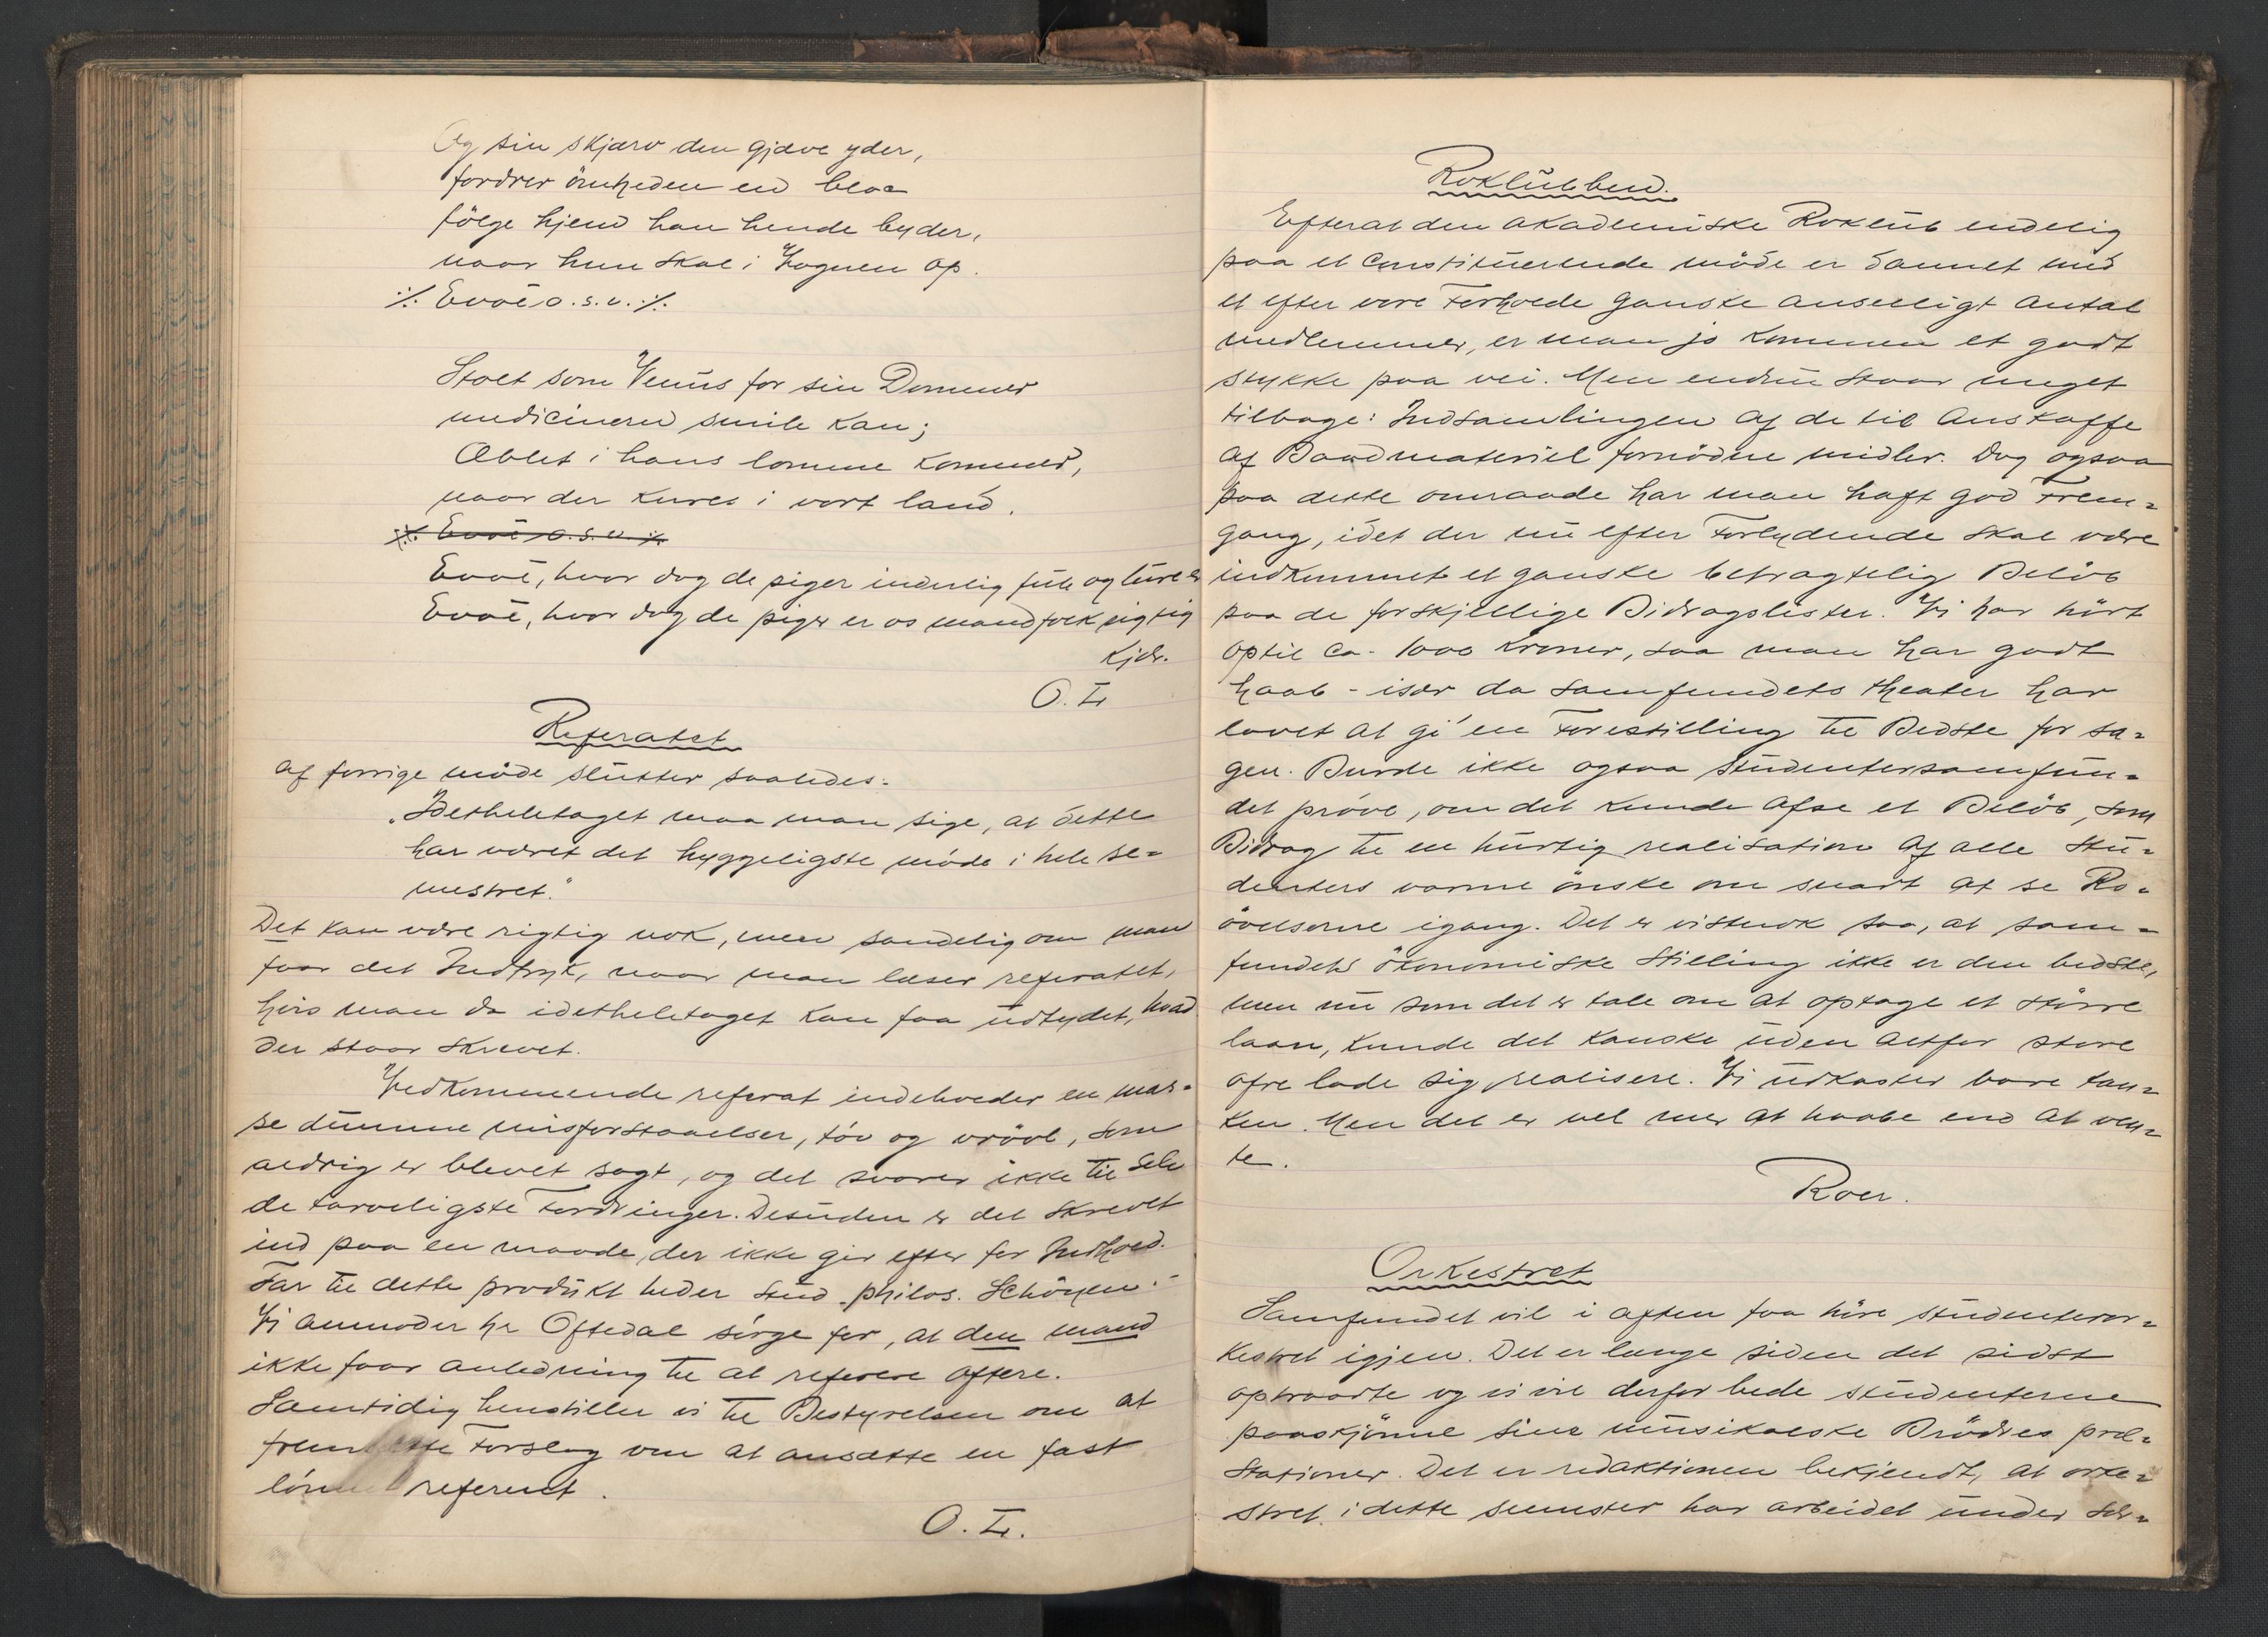 Og sin skjærv den gjæve yder,
fordrer ömheden en blaa
fölge hjem han hende byder,
naar hun skal i Vognen op.
·/. Evoë o. s. v. ·/.
Stolt som Venus for sin Dommer
medicineren smile kan;
Æblet i hans lomme kommer,
naar der kures i vort land.
·/. Evoë o. s. v. ·/.
Evoë, hvor dog de piger inderlig fule og lure er
Evoë, hvor dog de piger er os mandfolk rigtig
kjær.
O. L.
Referatet
af forrige möde slutter saaledes:
"Idetheletaget maa man sige, at dette
har været det hyggeligste möde i hele se=
mestret."
Det kan være rigtig nok, men sandelig om man
faar det Indtryk, naar man læser referatet,
hvis man da idetheletaget kan faa udtydet, hvad
der staar skrevet.
Vedkommende referat indeholder en mas=
se dumme misforstaaelser, töv og vrövl, som
aldrig er blevet sagt, og det svarer ikke til selv
de tarveligste Fordringer. Desuden er det skrevet
ind paa en maade, der ikke gir efter for Indhold.
Far til dette produkt heder stud. philos. Schöyen.
Vi anmoder hr Oftedal sörge for, at den mand
ikke faar anledning til at referere oftere.
Samtidig henstiller vi til Bestyrelsen om at
fremsætte Forslag om at ansætte en fast
lönnet referent.
O. L.
Roklubben.
Efterat den akademiske Roklub endelig
paa et constituerende möde er dannet med
et efter vore Forholde ganske anseeligt antal
medlemmer, er man jo kommen et godt
stykke paa vei. Men endnu staar meget
tilbage: Indsamlingen af de til Anskaffe
af Baadmateriel fornödne midler. Dog ogsaa
paa dette omraade har man haft god Frem=
gang, idet der nu efter Forlydende skal være
indkommet et ganske betragtelig Belöb
paa de forskjellige Bidragslister. Vi har hört
optil ca. 1000 kroner, saa man har godt
haab - især da Samfundets theater har
lovet at gi' en Forestilling til Bedste for sa=
gen. Burde ikke ogsaa Studentersamfun=
det pröve, om det kunde afse et Belöb, som
Bidrag til en hurtig realisation af alle Stu=
denters varme önske om snart at se Ro=
övelserne igang. Det er vistnok saa, at sam=
fundets ökonomiske Stilling ikke er den bedste,
men nu som det er tale om at optage et större
laan, kunde det kanske uden altfor store
ofre lade sig realisere. Vi udkaster bare tan=
ken. Men det er vel mer at haabe end at ven=
te.
Roer.
Orkestret
Samfundet vil i aften faa höre studenteror=
kestret igjen. Det er længe siden det sidst
optraadte og vi vil derfor bede studenterne
paaskjönne sine musikalske Brödres præ=
stationer. Det er redaktionen bekjendt, at orke=
stret i dette semester har arbeidet under sær=